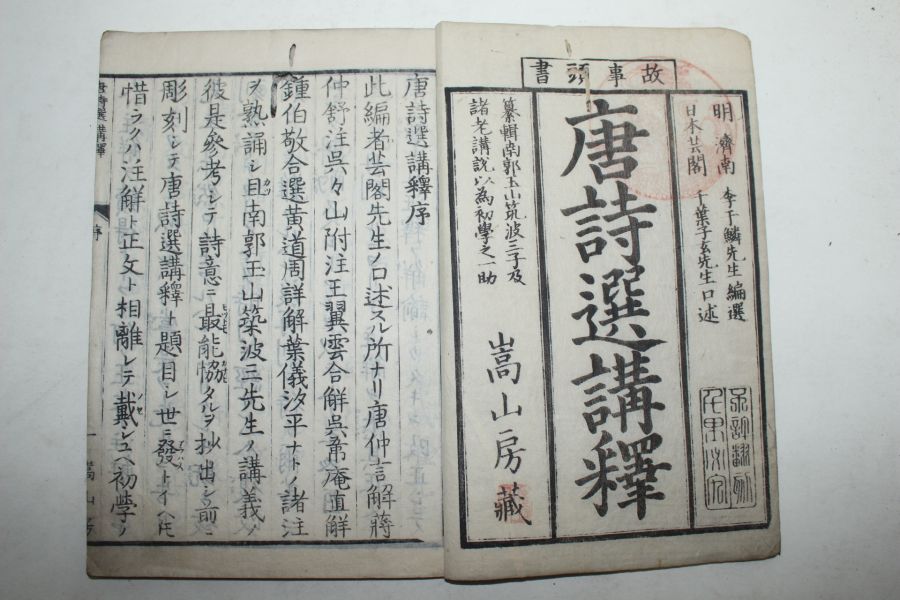 故事頭書
明 濟南 李于鱗先生編選
日本芸閣 千葉子玄先生口述
唐詩選講釋
纂輯南郭玉山筑波三子及
諸老講説以為初學之一助
嵩山房藏
唐詩選講釋序
此編者芸閣先生ノ口述スル所ナリ唐仲言解蔣
仲舒注呉々山附注王翼雲合解呉㡭庵直解
鍾伯敬合選黄道周詳解葉儀汐平ナトノ諸注
ヲ熟誦シ且南郭玉山筑波三先生ノ講義ヲ
彼是參考シテ詩意ニ最能協タルヲ抄出シ前ニ
彫刻シテ唐詩選講釋ト題目シ世ニ發トイヘ𪜈
惜ラクハ注解ト正文ト相離レテ戴シユヘ初學ノ
唐詩選講釋
序